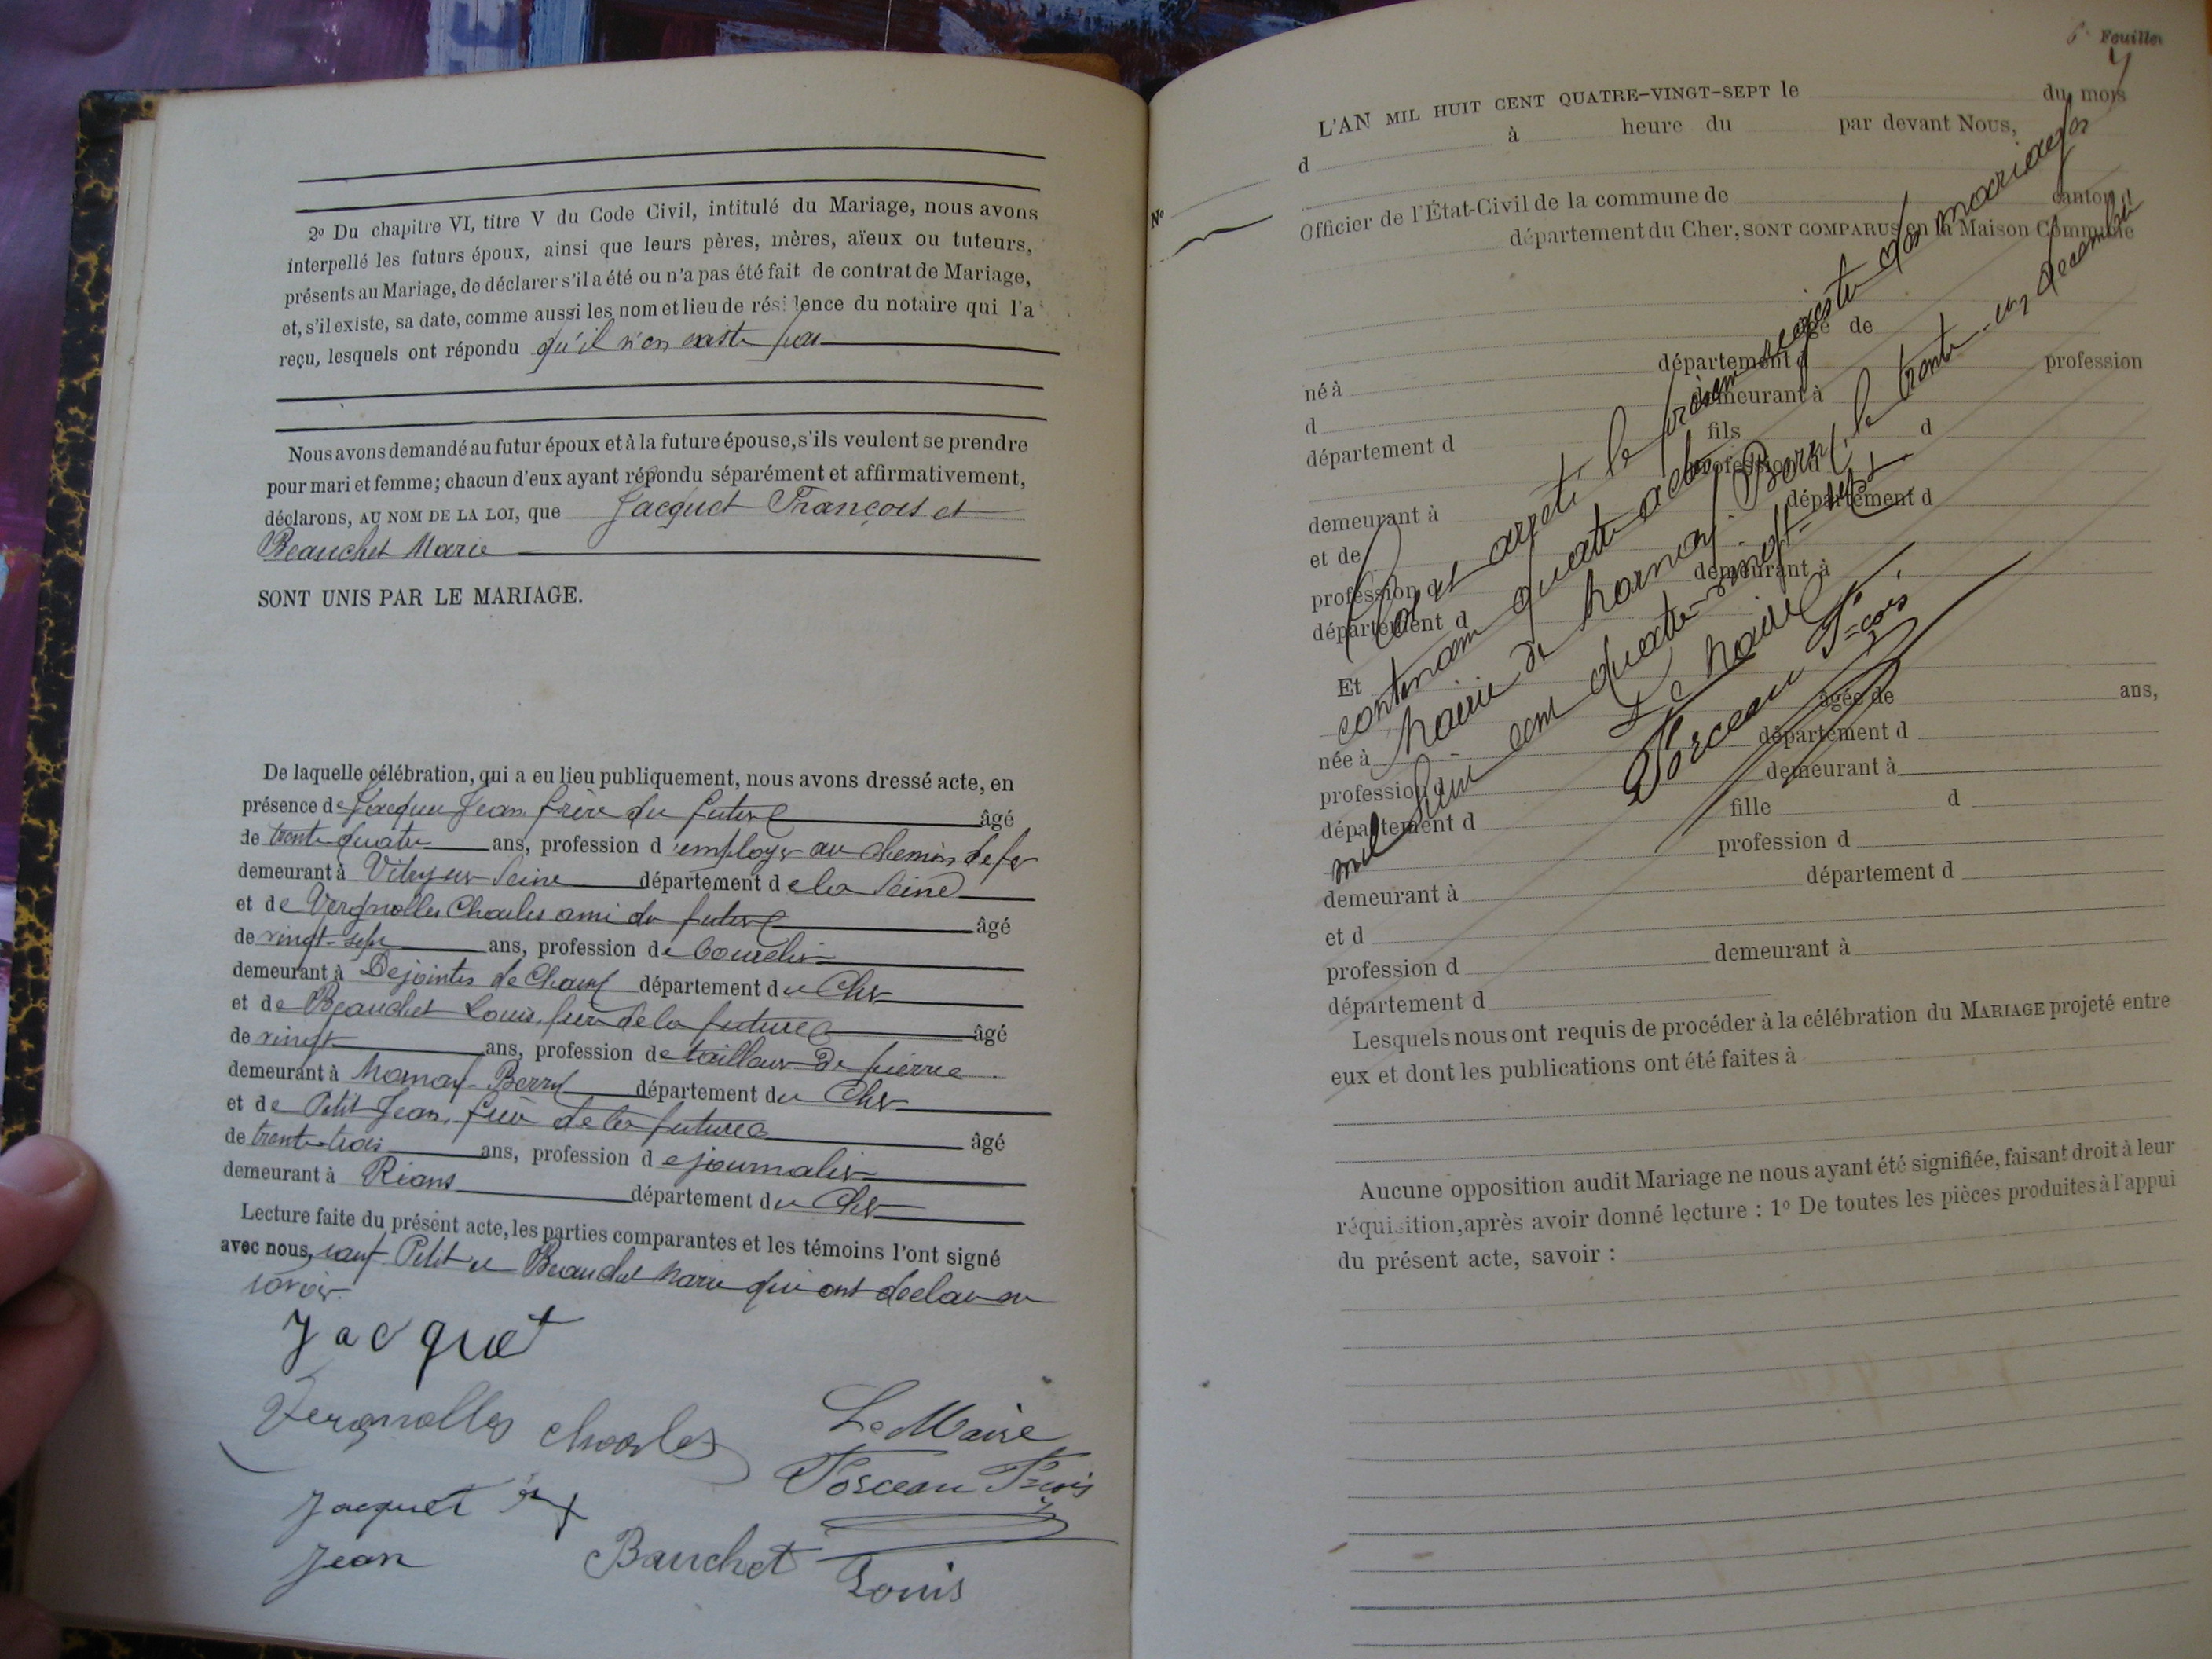 2º Du chapitre VI, titre V du Code Civil, intitulé du Mariage, nous avons
interpellé les futurs époux, ainsi que leurs pères, mères, aïeux ou tuteurs,
présents au Mariage, de déclarer s'il a été ou n'a pas été fait de contrat de Mariage,
et, s'il existe, sa date, comme aussi les nom et lieu de résidence du notaire qui l'a
reçu, lesquels ont répondu qu'il n'en existe pas
Nous avons demandé au futur époux et à la future épouse, s'ils veulent se prendre
pour mari et femme; chacun d'eux ayant répondu séparément et affirmativement,
déclarons, AU NOM DE LA LOI, que Jacquet François et
Beauchet Marie
SONT UNIS PAR LE MARIAGE.
De laquelle célébration, qui a eu lieu publiquement, nous avons dressé acte, en
présence de Jacquet Jean, frère du futur âgé
de trente-quatre ans, profession d'employé au chemin de fer
demeurant à Vitry sur Seine département de la Seine
et de Vergnolles Charles ami du futur âgé
de vingt-sept ans, profession de bourelier
demeurant à Dejointes de Chaum département du Cher
et de Beauchet Louis, frère de la future âgé
de vingt ans, profession de tailleur de pierre
demeurant à Mornay-Berry département du Cher
et de Petit Jean, frère de la future âgé
de trente-trois ans, profession de journalier
demeurant à Rians département du Cher
Lecture faite du présent acte, les parties comparantes et les témoins l'ont signé
avec nous, sauf Petit et Beauchet Marie qui ont déclaré ne
savoir.
Jacquet
Vergnolles Charles
Le Maire
Josceau F=cois
Jacquet
Jean
Bauchet Louis
6e Feuillet
L'AN MIL HUIT CENT QUATRE-VINGT-SEPT le du mois
d à heure du par devant Nous,
Nº
Officier de l'État-Civil de la commune de canton d
département du Cher, SONT COMPARUS en la Maison Commune
âgé de
né à département d profession
d demeurant à
département d fils d
profession d
demeurant à département d
et de
profession d demeurant à
département d
Et
âgée de ans,
née à département d
profession d demeurant à
département d fille d
profession d
demeurant à département d
et d
profession d demeurant à
département d
Clos et arrêté le présent registre des mariages
contenant quatre actes
Mairie de Mornay-Berry, le trente-un décembre
mil huit cent quatre-vingt-sept.
Le Maire
Josceau F=cois
Lesquels nous ont requis de procéder à la célébration du MARIAGE projeté entre
eux et dont les publications ont été faites à
Aucune opposition audit Mariage ne nous ayant été signifiée, faisant droit à leur
réquisition, après avoir donné lecture : 1º De toutes les pièces produites à l'appui
du présent acte, savoir :